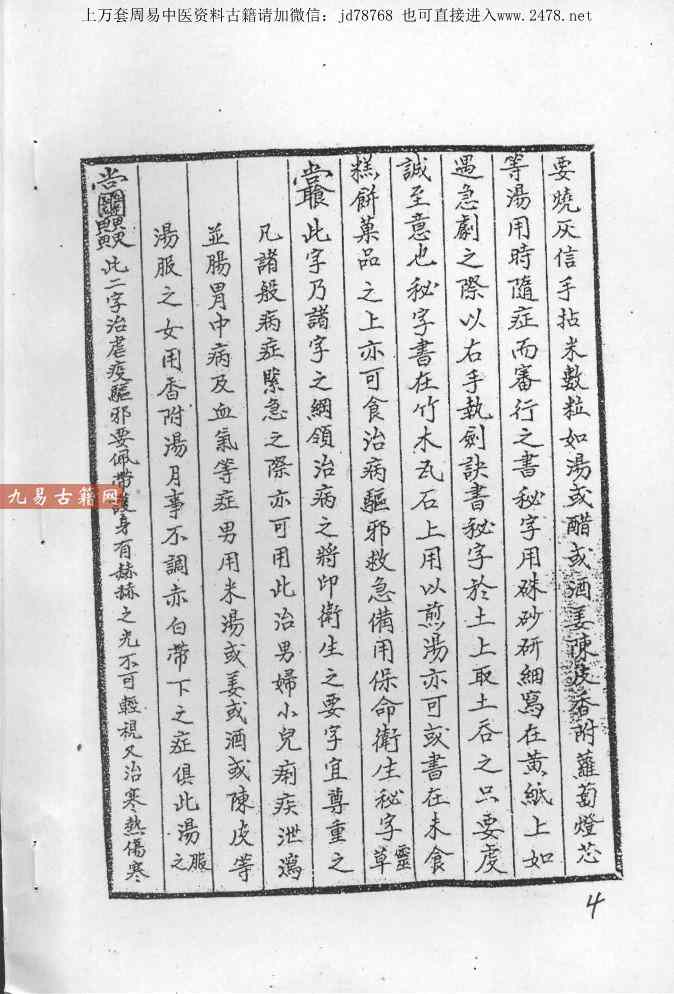 上万套周易中医资料古籍请加微信：jd78768 也可直接进入www.2478.net
要燒灰信手拈米數粒如湯或醋或酒姜陳皮香附蘿蔔燈芯
等湯用時隨症而審行之書秘字用硃砂研細寫在黃紙上如
遇急劇之際以右手執劍訣書秘字於土上取土吞之只要虔
誠至意也秘字書在竹木瓦石上用以煎湯亦可或書在未食
糕餅菓品之上亦可食治病驅邪救急備用保命衛生秘字靈草
此字乃諸字之綱領治病之將印衛生之要字宜尊重之
凡諸般病症緊急之際亦可用此治男婦小兒痢疾泄瀉
並腸胃中病及血氣等症男用米湯或姜或酒或陳皮等
湯服之女用香附湯月事不調赤白帶下之症俱此湯服之
此二字治虐疫驅邪要佩帶護身有赫赫之光不可輕視又治寒熱傷寒
九易古籍网
4